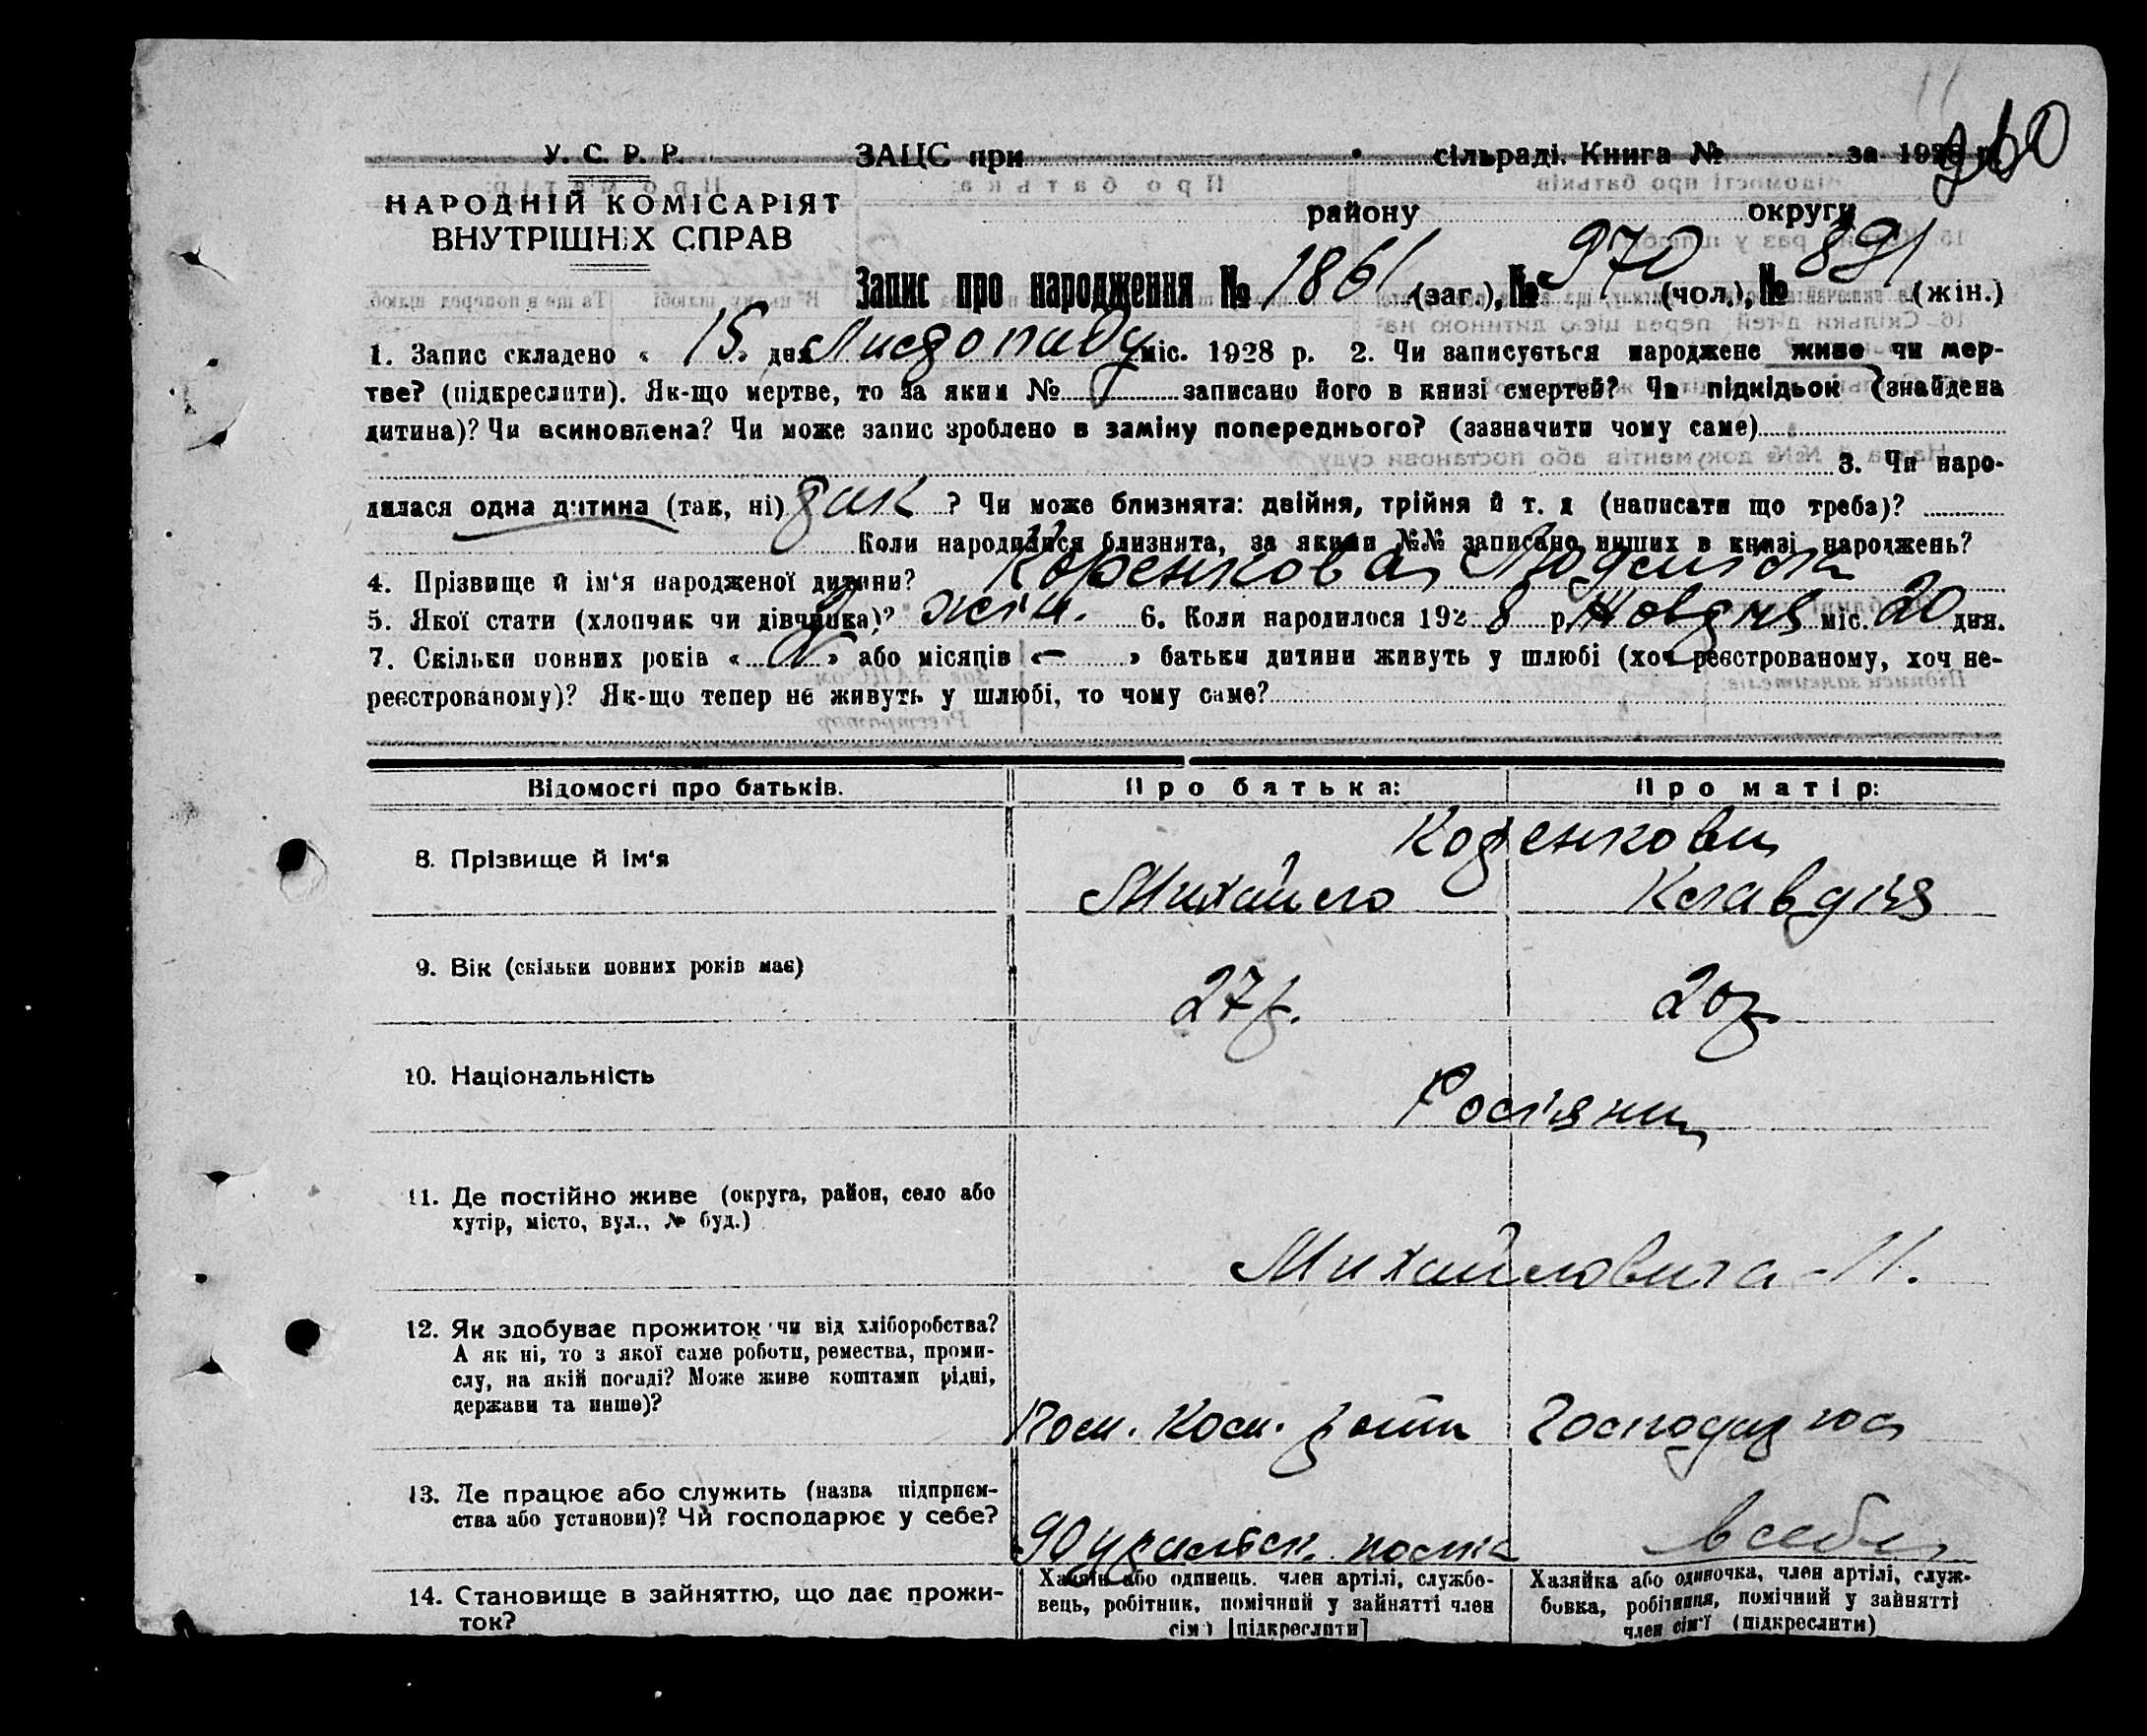 У. С. Р. Р. ЗАЦС при сільраді. Книга № за 1928 р. 260
НАРОДНІЙ КОМІСАРІЯТ
ВНУТРІШНІХ СПРАВ
району округи
Запис про народження № 1861 (заг.), № 970 (чол.), № 891 (жін.)
1. Запис складено « 15 » дня Листопаду міс. 1928 р. 2. Чи записується народжене живе чи мер-
тве? (підкреслити). Як-що мертве, то за яким № записано його в книзі смертей? Чи підкідьок (знайдена
дитина)? Чи всиновлена? Чи може запис зроблено в заміну попереднього? (зазначити чому саме)
3. Чи наро-
дилася одна дитина (так, ні) так ? Чи може близнята: двійня, трійня й т. д (написати що треба)?
Коли народилися близнята, за якими №№ записано инших в книзі народжень?
4. Прізвище й ім‘я народженої дитини? Коренкова Людміла
5. Якої стати (хлопчик чи дівчинка)? жін. 6. Коли народилося 192 8 р. Жовтня міс. 20 дня.
7. Скільки повних років « » або місяців « — » батьки дитини живуть у шлюбі (хоч реєстрованому, хоч не-
реєстрованому)? Як-що тепер не живуть у шлюбі, то чому саме?
Відомості про батьків. Про батька: Про матір:
Коренкови
8. Прізвище й ім‘я Михайло Клавдія
9. Вік (скільки повних років має) 27 р. 20 р
10. Національність Росіяни
11. Де постійно живе (округа, район, село або
хутір, місто, вул., № буд.) Михайловича - 11.
12. Як здобуває прожиток чи від хліборобства?
А як ні, то з якої саме роботи, ремества, проми-
слу, на якій посаді? Може живе коштами рідні,
держави та инше)? Пом. Ком. роти Господарює
13. Де працює або служить (назва підприєм-
ства або установи)? Чи господарює у себе? 90 уральск. полк в себе
14. Становище в зайняттю, що дає прожи-
ток?
Хазяїн або одинець, член артілі, службо-
вець, робітник, помічний у зайнятті член
сім‘ї [підкреслити]
Хазяйка або одиночка, член артілі, служ-
бовка, робітниця, помічний у зайнятті
член сім‘ї (підкреслити)